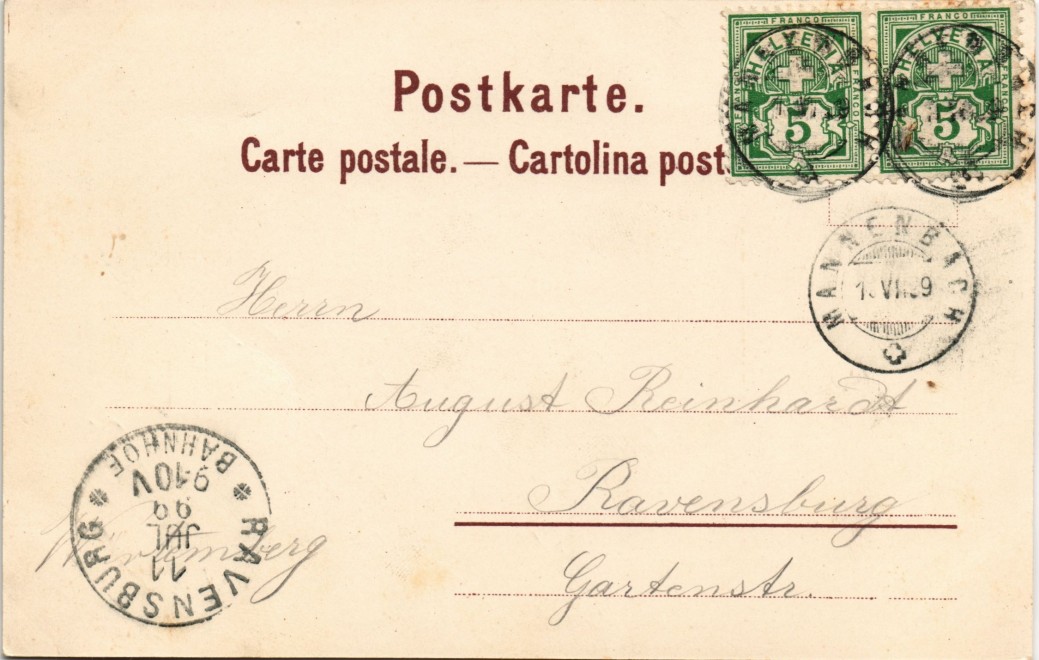 Postkarte.
Carte postale. — Cartolina post
FRANCO
HELVETIA
FRANCO
FRANCO
5
FRANCO
HELVETIA
FRANCO
FRANCO
5
MANNENBACH
VII.99
Herrn
August Reinhardt
Ravensburg
Gartenstr.
Württemberg
RAVENSBURG
BAHNHOF
11
JUL
99
9-10V